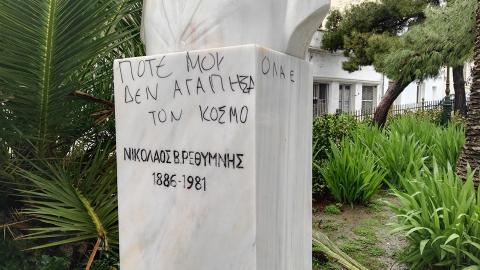 ΠΟΤΕ ΜΟΥ
ΔΕΝ ΑΓΑΠΗΣΑ
ΤΟΝ ΚΟΣΜΟ
ΝΙΚΟΛΑΟΣ Β. ΡΕΘΥΜΝΗΣ
1886-1981